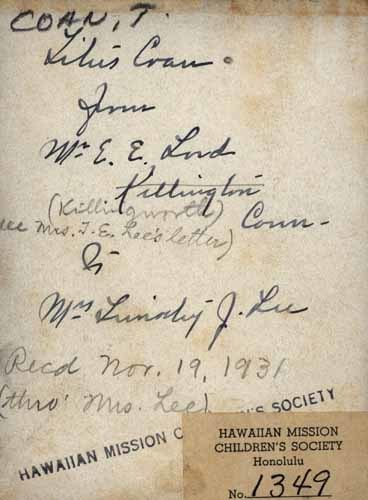 COAN, T.
Titus Coan.
from
Mr E. E. Lord
Killington
(Killingworth)
Conn-
see Mrs. T. E. Lee's letter)
To
Mrs Timothy J. Lee
Recd Nov. 19, 1931
(thro' Mrs. Lee)
HAWAIIAN MISSION C   N'S SOCIETY
HAWAIIAN MISSION
CHILDREN'S SOCIETY
Honolulu
No. 1349